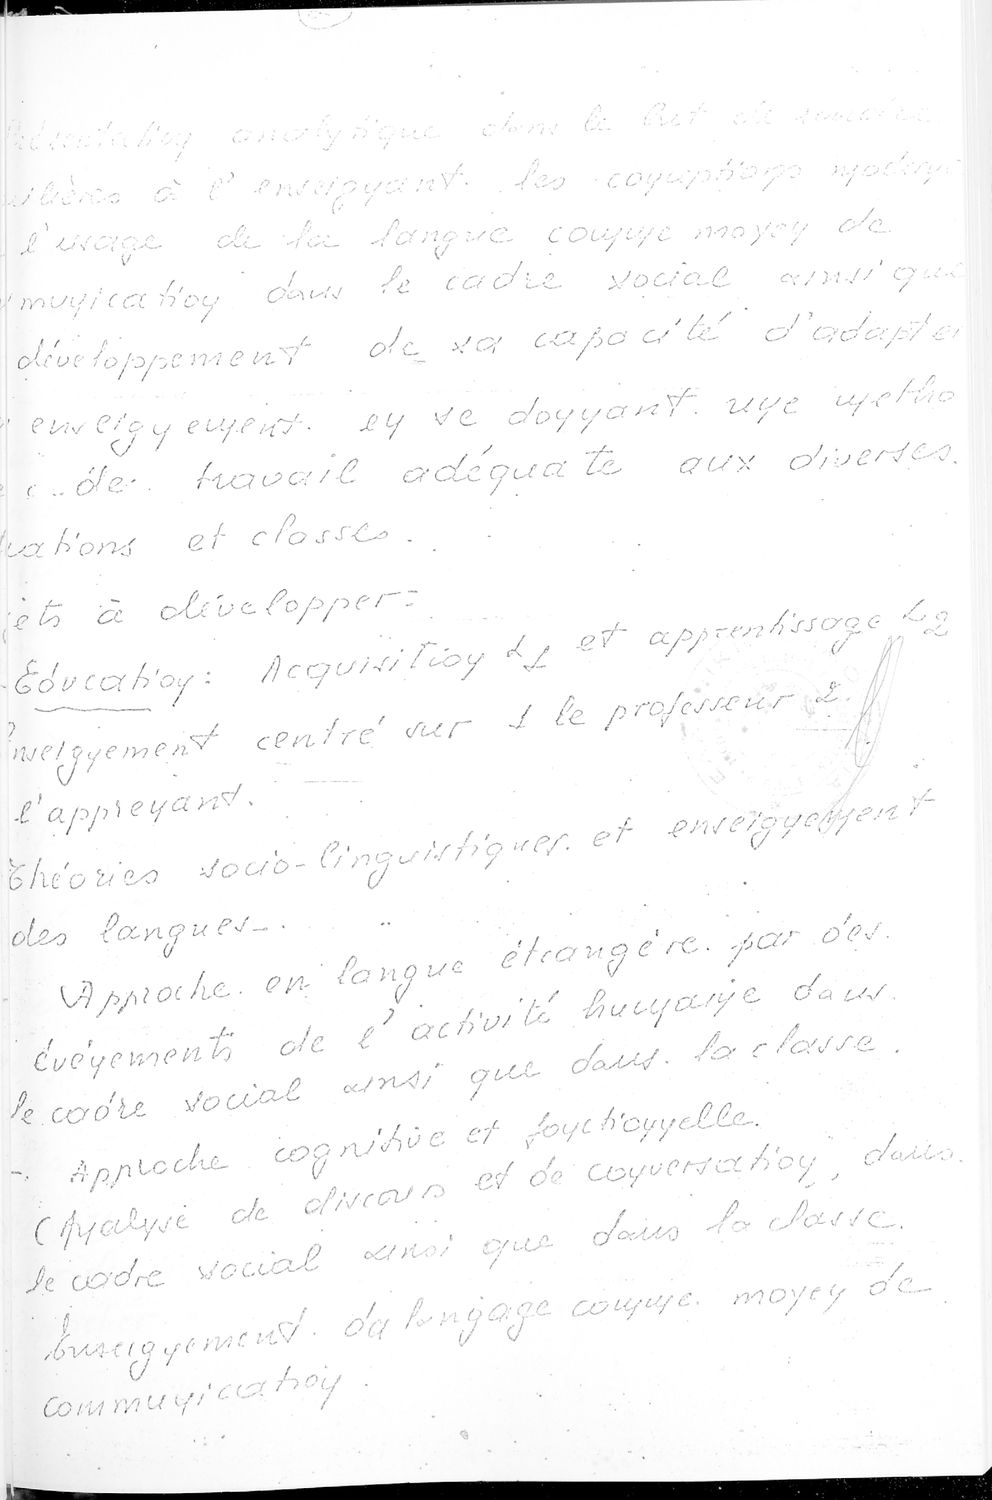 Présentation analytique dans le but de rendre
familières à l'enseignant. les conceptions modern
l'usage de la langue comme moyen de
munication dans le cadre social ainsi que
développement de sa capacité d'adapter
enseignement. en se donnant. une métho
de travail adéquate aux diverses.
uations et classes.
jets à développer:
Education: Acquisition L1 et apprentissage L2
nseignement centré sur 1 le professeur 2.
l'apprenant.
Théories socio-linguistiques. et enseignement
des langues-.
Approche. en langue étrangère. par des.
événements de l'activité humaine dans.
le cadre social ainsi que dans. la classe.
-. Approche cognitive et fonctionnelle.
(Analyse de discours et de conversation, dans.
le cadre social ainsi que dans la classe.
Enseignement. du langage comme. moyen de
communication.